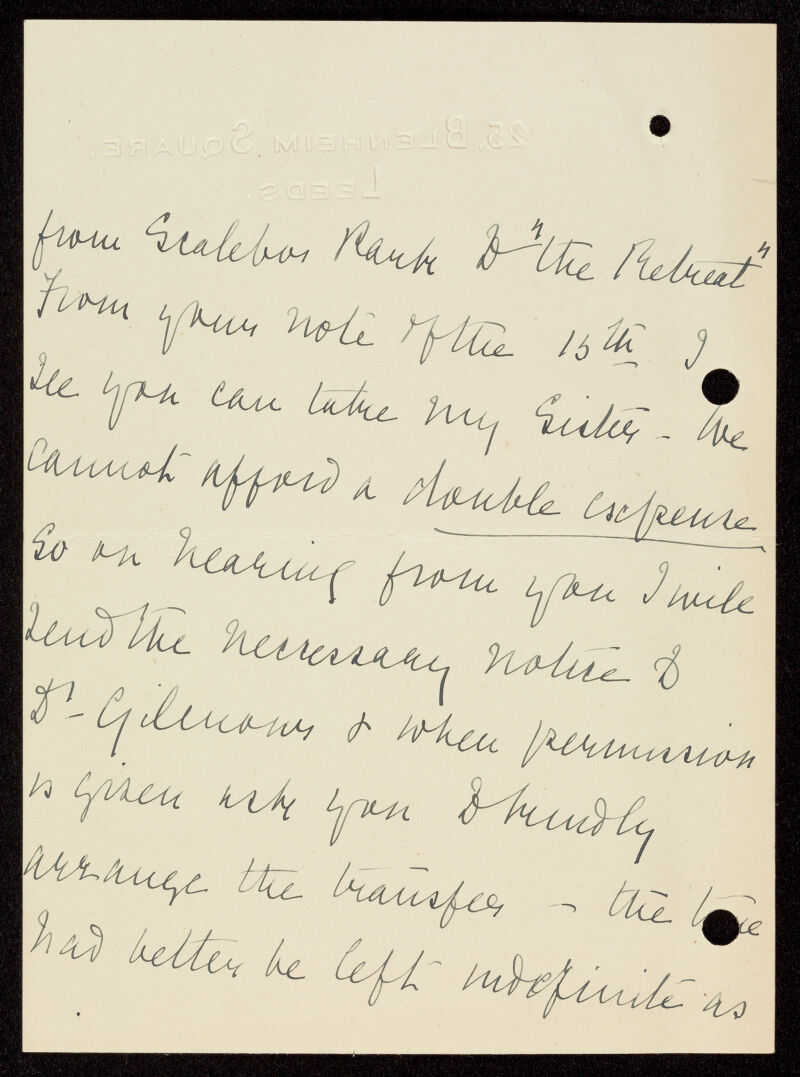 25, BLENHEIM SQUARE,
LEEDS.
from Scalebor Park to "the Retreat"
From your note of the 15th I
see you can take my Sister - We
cannot afford a double expense
So on hearing from you I will
send the necessary notice to
Dr - Gilmour & when permission
is given ask you to kindly
arrange the transfer - the time
had better be left indefinite as